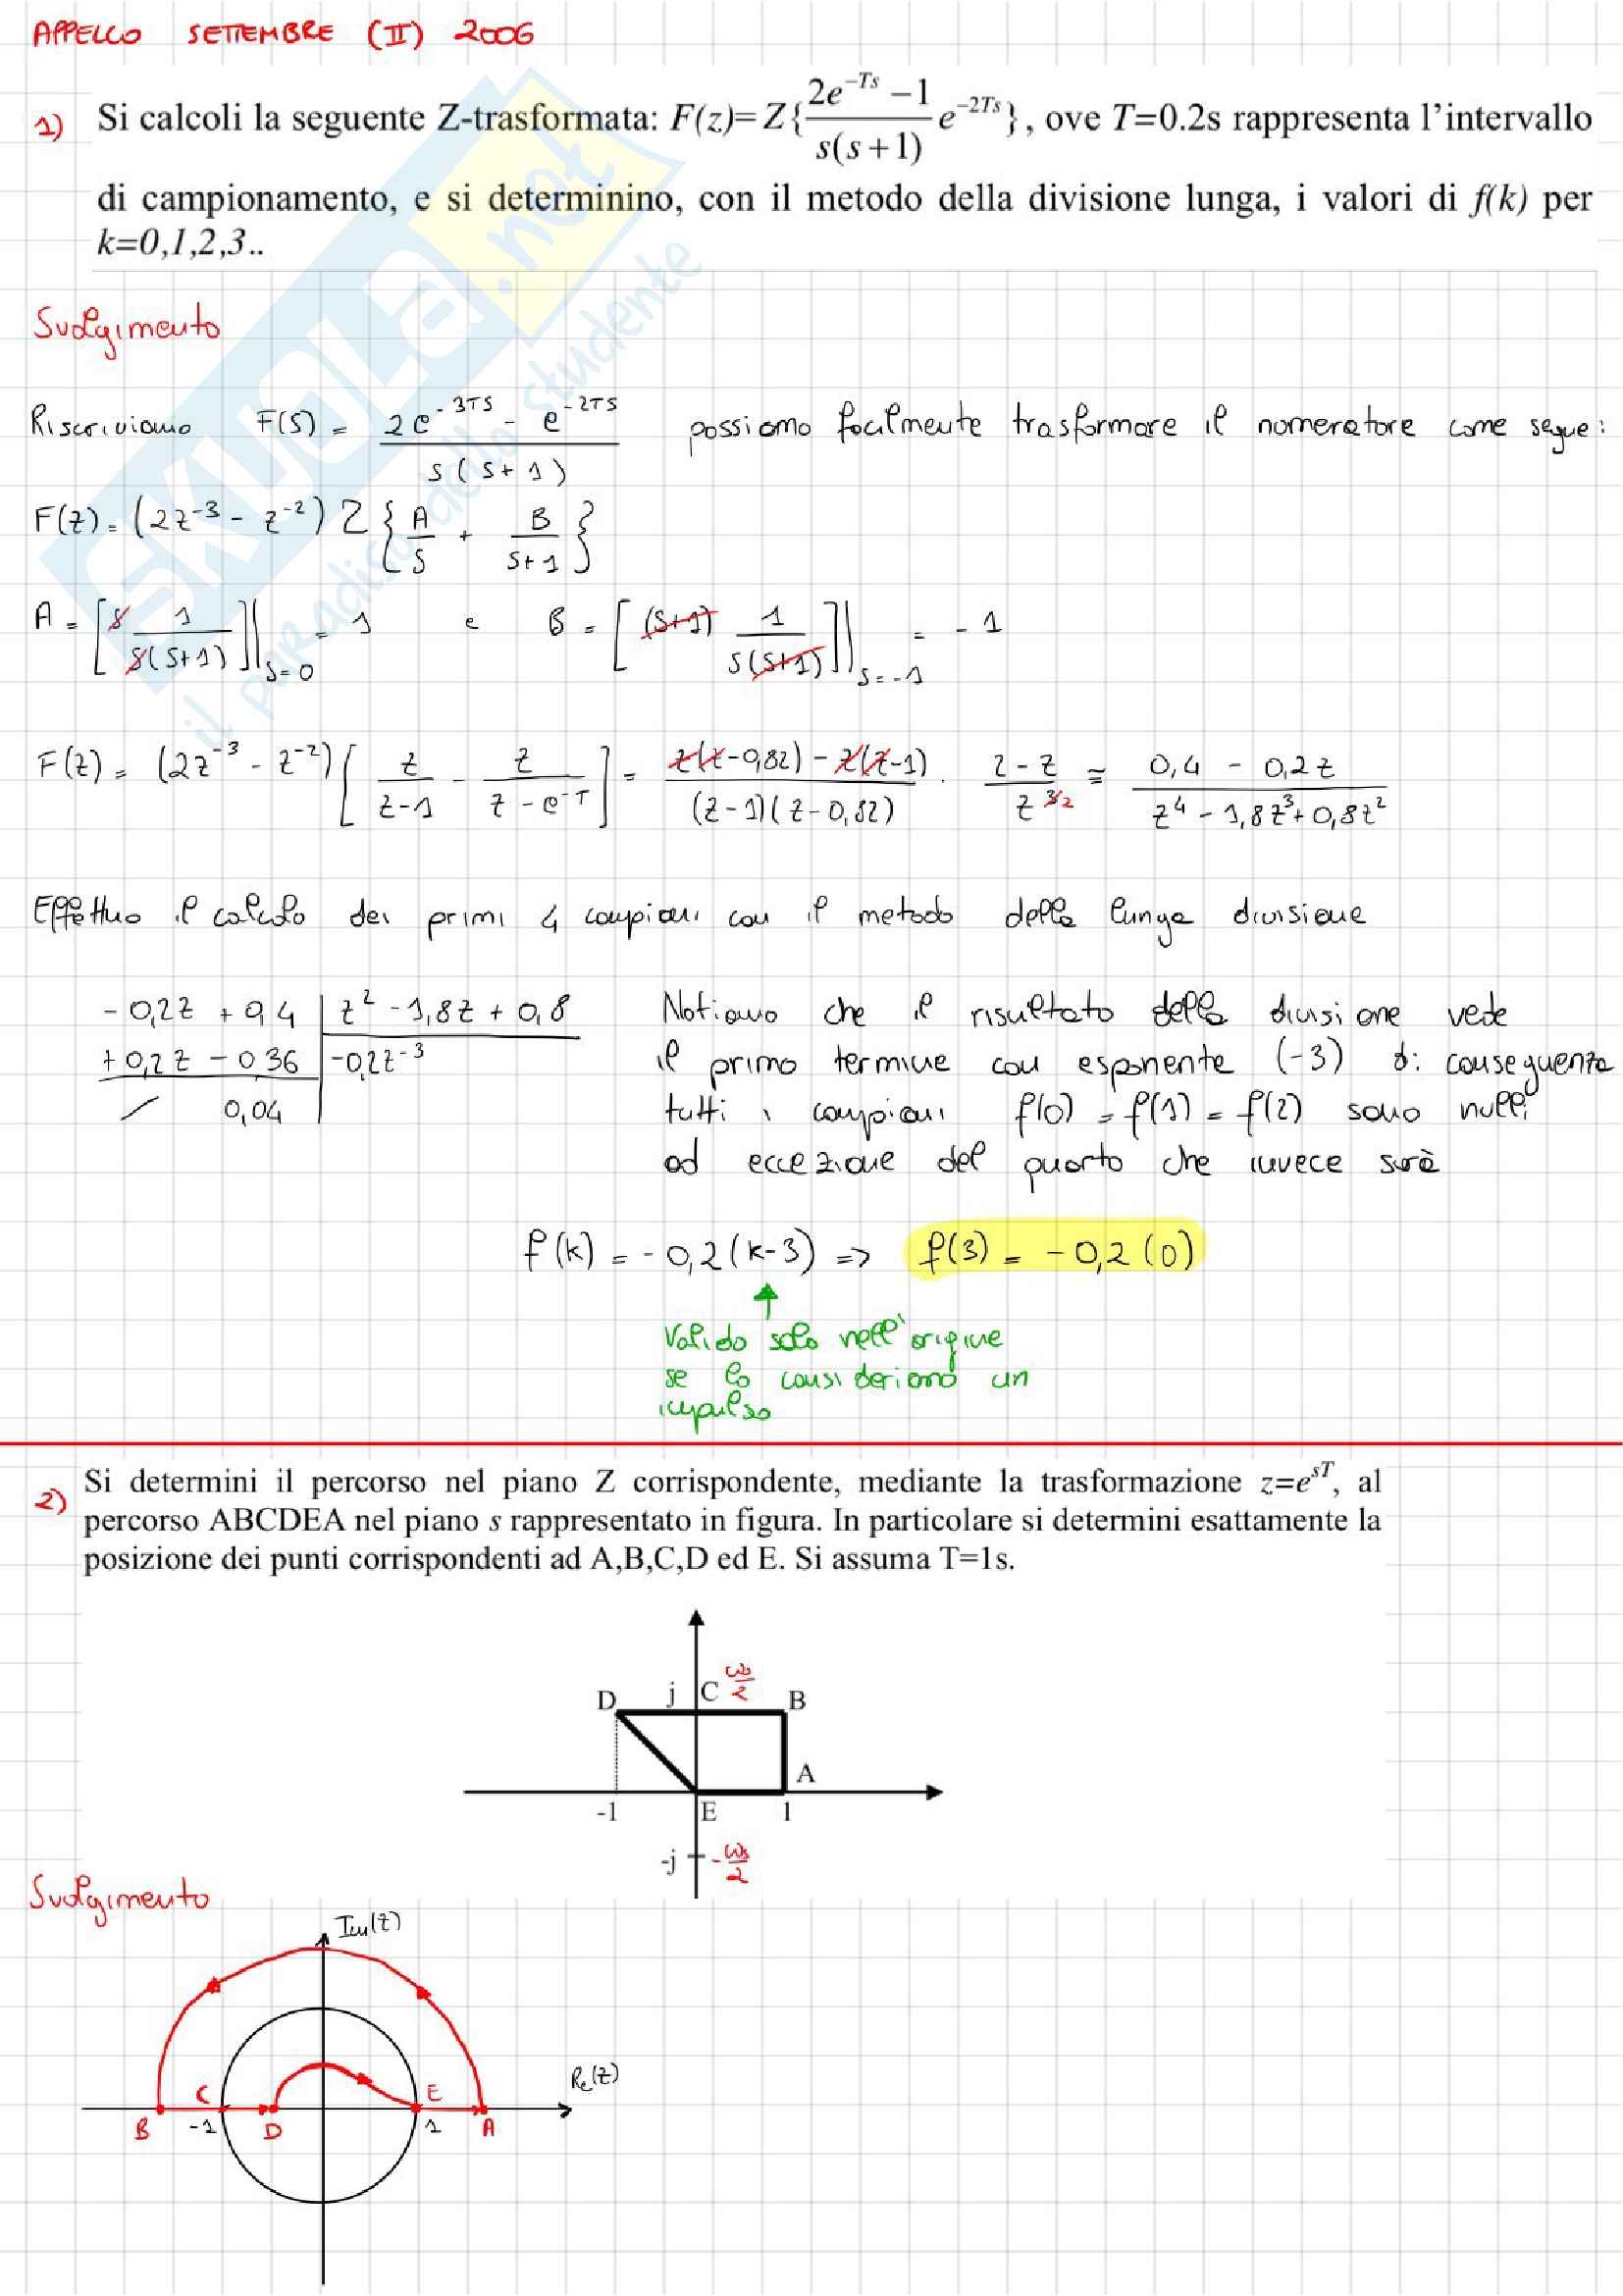 APPELLO SETTEMBRE (II) 2006
1) Si calcoli la seguente Z-trasformata: F(z)=Z{\frac{2e^{-Ts}-1}{s(s+1)}e^{-2Ts}}, ove T=0.2s rappresenta l'intervallo
di campionamento, e si determinino, con il metodo della divisione lunga, i valori di f(k) per
k=0,1,2,3..
SKUOLA.net
il paradiso dello studente
Svolgimento
Riscriviamo F(S) = \frac{2e^{-3TS} - e^{-2TS}}{s(s+1)} possiamo facilmente trasformare il numeratore come segue:
F(z) = (2z^{-3} - z^{-2}) Z{\frac{A}{S} + \frac{B}{S+1}}
A = [s \frac{1}{s(s+1)}]|_{s=0} = 1 e B = [(s+1) \frac{1}{s(s+1)}]|_{s=-1} = -1
F(z) = (2z^{-3} - z^{-2}) [\frac{z}{z-1} - \frac{z}{z-e^{-T}}] = \frac{z(z-0,82) - z(z-1)}{(z-1)(z-0,82)} · \frac{2-z}{z^{3/2}} ≅ \frac{0,4 - 0,2z}{z^4 - 1,8z^3 + 0,8z^2}
Effettuo il calcolo dei primi 4 campioni con il metodo della lunga divisione
-0,2z + 0,4 | z^2 - 1,8z + 0,8
+0,2z - 0,36 | -0,2z^{-3}
/ 0,04
Notiamo che il risultato della divisione vede
il primo termine con esponente (-3) di conseguenza
tutti i campioni f(0) = f(1) = f(2) sono nulli
ad eccezione del quarto che invece sarà
f(k) = -0,2(k-3) => f(3) = -0,2(0)
Valido solo nell'origine
se lo consideriamo un
impulso
2) Si determini il percorso nel piano Z corrispondente, mediante la trasformazione z=e^{sT}, al
percorso ABCDEA nel piano s rappresentato in figura. In particolare si determini esattamente la
posizione dei punti corrispondenti ad A,B,C,D ed E. Si assuma T=1s.
D j C \frac{ωs}{2} B
A
-1 E 1
-j -\frac{ωs}{2}
Svolgimento
Im(z)
Re(z)
C E
B -1 D 1 A